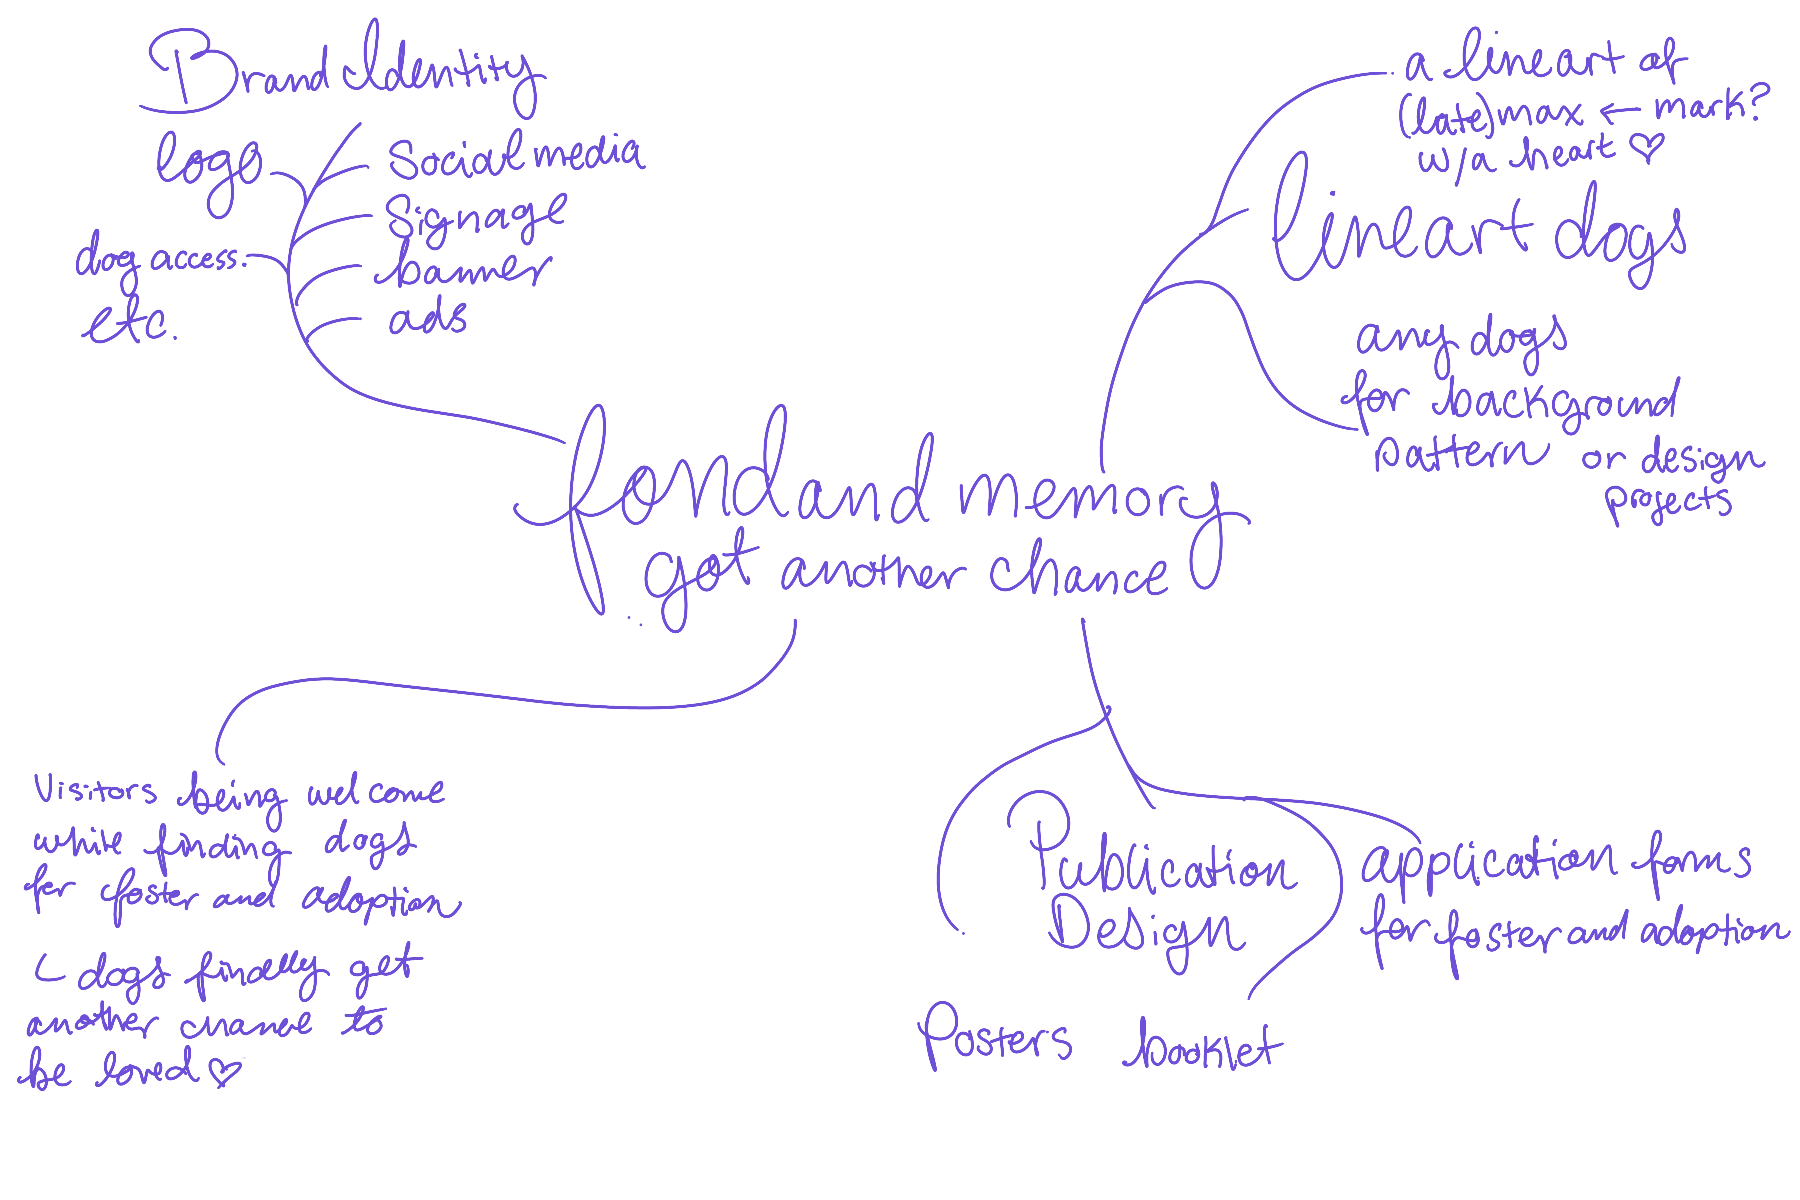 Brand Identity
logo
Social media
Signage
dog access.
banner
etc.
ads
a lineart of
(late) max ← mark?
w/a heart ♡
lineart dogs
any dogs
for background
pattern or design
projects
fond and memory
got another chance
Visitors being welcome
while finding dogs
for foster and adoption
dogs finally get
another chance to
be loved ♡
Publication
Design
application forms
for foster and adoption
Posters
booklet